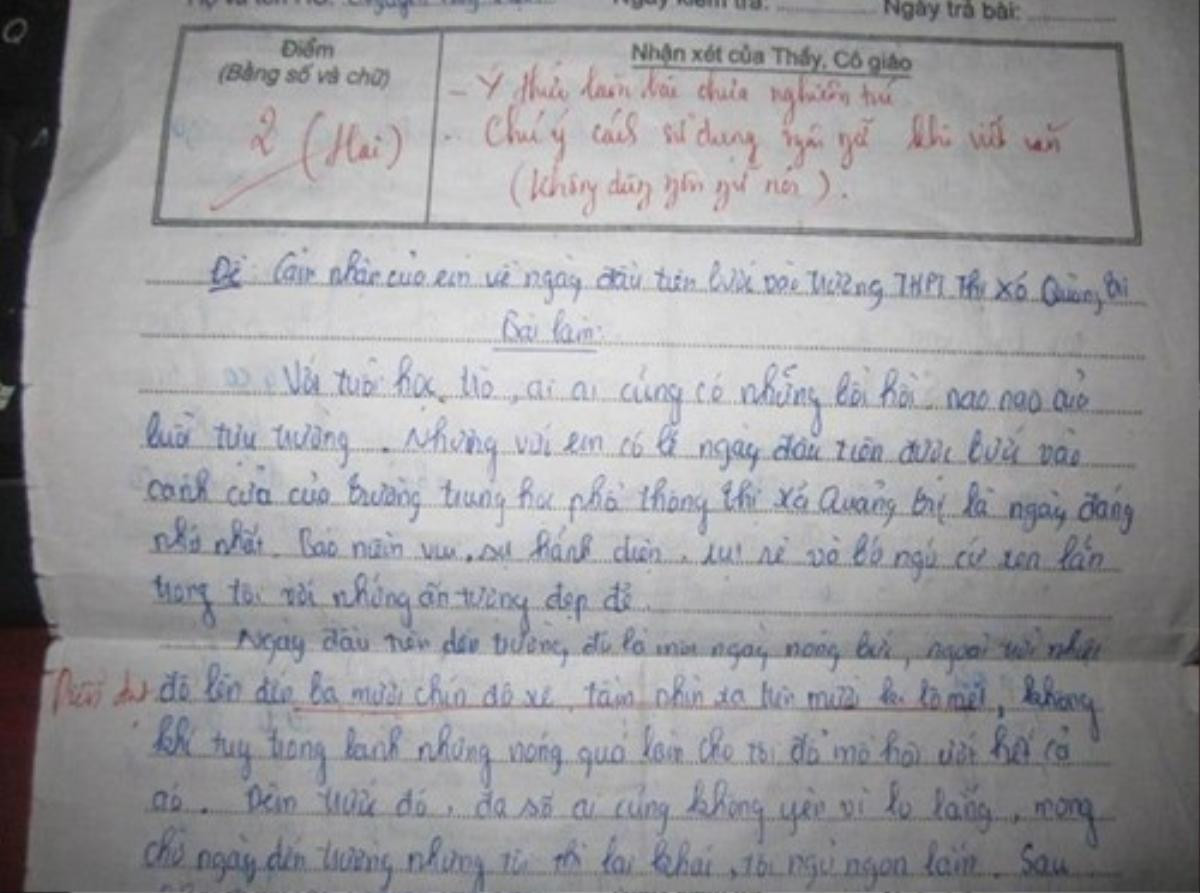 Ngày kiểm tra: ............ Ngày trả bài: ............
Điểm
(Bằng số và chữ)
2 (Hai)
Nhận xét của Thầy, Cô giáo
- Ý thức làm bài chưa nghiêm túc
- Chú ý cách sử dụng ngôn ngữ khi viết văn
(không dùng ngôn ngữ nói).
Đề: Cảm nhận của em về ngày đầu tiên bước vào trường THPT Thị Xã Quảng Trị
Bài làm:
Với tuổi học trò, ai ai cũng có những bồi hồi nao nao của
buổi tựu trường. Nhưng với em có lẽ ngày đầu tiên được bước vào
cánh cửa của trường trung học phổ thông thị xã Quảng Trị là ngày đáng
nhớ nhất. Bao niềm vui, sự hãnh diện, rụt rè và bỡ ngỡ cứ xen lẫn
trong tôi với những ấn tượng đẹp đẽ.
Ngày đầu tiên đến trường, đó là một ngày nóng bức, ngoài trời nhiệt
Diễn đạt
độ lên đến ba mươi chín độ xê, tầm nhìn xa trên mười ki lô mét, không
khí tuy trong lành nhưng nóng quá làm cho tôi đổ mồ hôi ướt hết cả
áo. Đêm trước đó, đa số ai cũng không yên vì lo lắng, mong
chờ ngày đến trường nhưng tôi thì lại khác, tôi ngủ ngon lắm. Sau